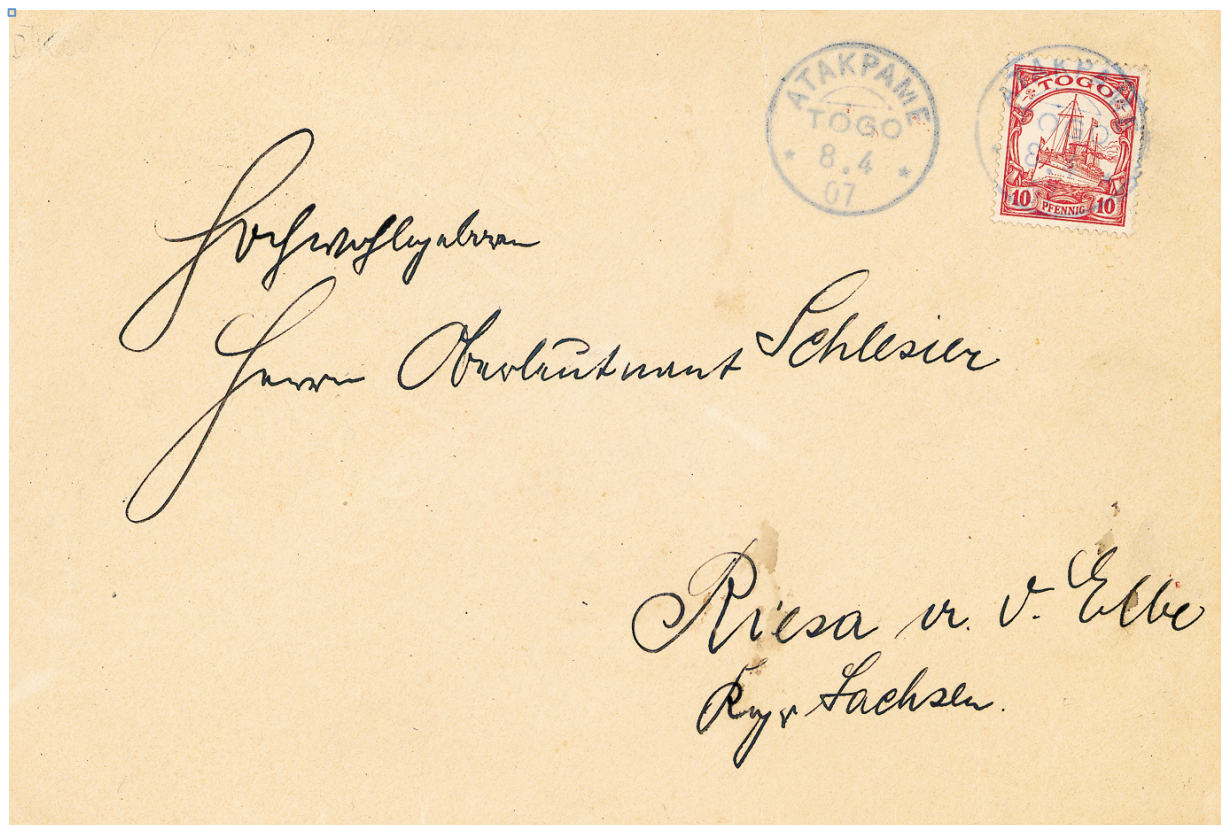 ATAKPAME
TOGO
8.4
07
TOGO
10 PFENNIG 10
Hochwohlgeboren
Herrn Oberleutnant Schlesier
Riesa a. d. Elbe
Kgr Sachsen.